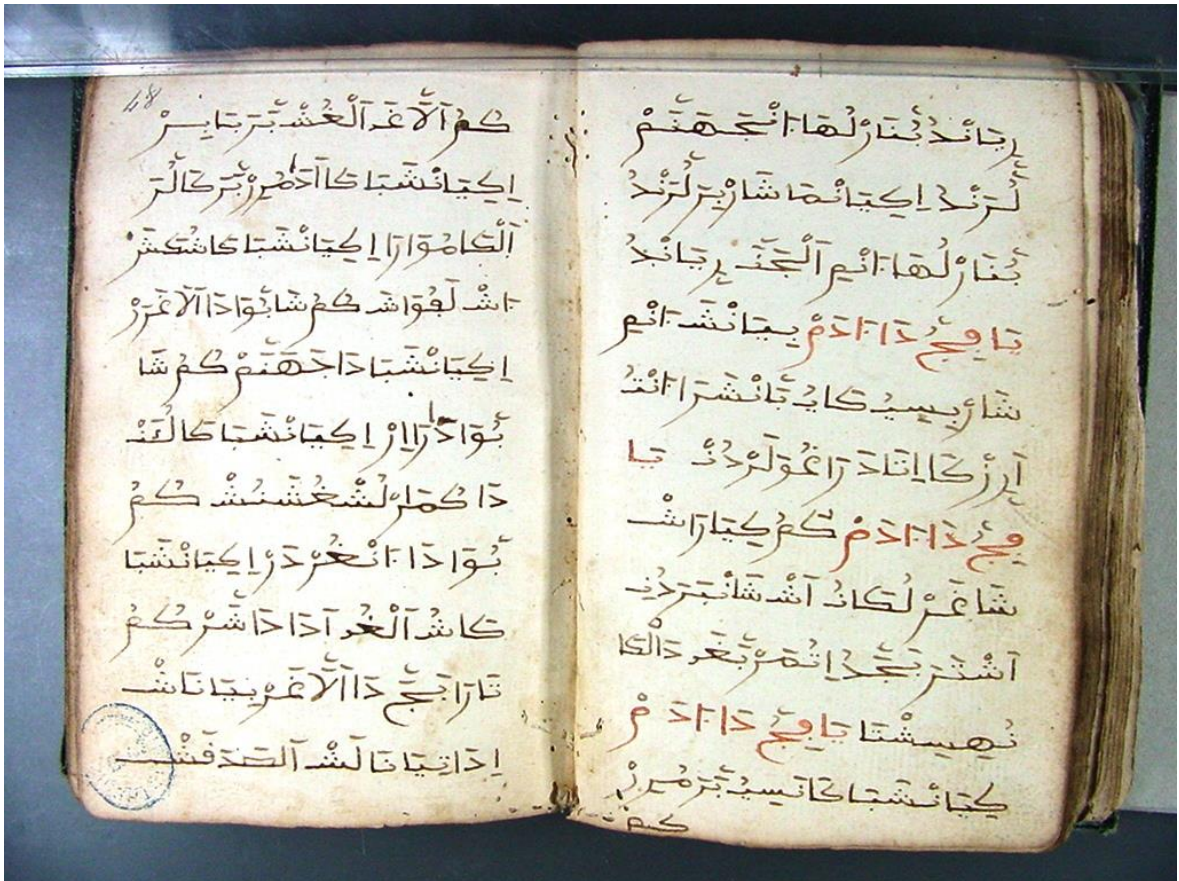 رِيَانْدُ بُّنَارْلُهَا اَنْجَهَنَّمْ
لُّرَنْدُ اِكِيَانْمَا شَارْبِرَ لُّرَنْدُ
بُّنَارْلُهَا اَانْاِل اَلْجَنَّه رِيَانْدُ
يَا فِجُّ دَا اَادَمْ بِيَانْشَ اَانْاِل
شَارْبِسِيُ كَايُ بَّانْشَرَا اَانْتُ
اَرِزْكَا اِنَادَ رَاغُوَلَرْدُنْ يَا
فِجُّ دَا اَادَمْ كُمُ كِيَارَاشْ
شَاغَرْ لُكَانُ اَشْ شَانْبَرَدُ
اَشْنَرَ بَجَّدُ اِتُمَرْ بَّغَ دَالْكَا
نُهِيسِشْتَا يَا فِجُّ دَا اَادَمْ
كِيَانْشَبَا كَانَسِيُ بَّرَ مُرِرْ
كُمُ
48
كُمُ اَلَّاغَ اَلْغُشْ بَّرَ بَابِرْ
اِكِيَانْشَبَا كَا اَادَمُرِرْ بَّرَ كَالُّرَ
اَلْكَامُوَارَا اِكِيَانْشَبَا كَاشُكَشَ
اَاشْ لَفُوَاشَ كُمُ شَابُّوَادَا اَلَاغَرَرْ
اِكِيَانْشَبَا دَا جَهَنَّمْ كُمُ شَا
بُّوَادَا رَااِرْ اِكِيَانْشَبَا كَا لُكَنْ
دَا كُمَارْ لُشْغُشَنُشْ كُمُ
بُّوَادَا اَانْغُرْدَرْ اِكِيَانْشَبَا
كَاشُ اَلْغُ اَدَا دَاشَّرْ كُمُ
تَارَابَجَّ دَا اَلَّاغَرْ بِيَانَاشْ
اِدَاتِيَانَا لَشْ اَلصَّدَقَشْ